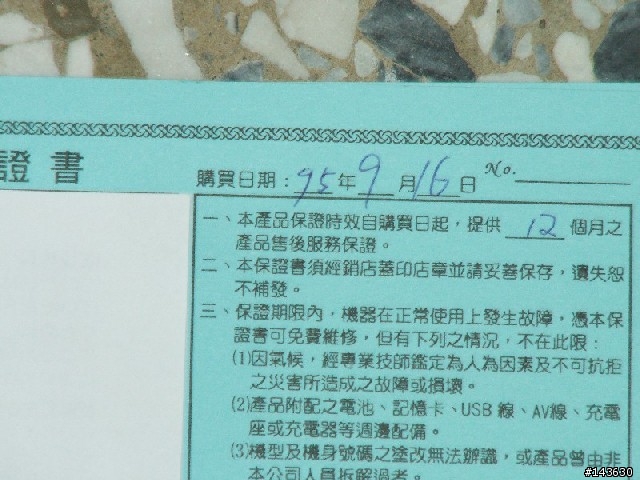 證書
購買日期：95年9月16日 No.
一、本產品保證時效自購買日起，提供 12 個月之
產品售後服務保證。
二、本保證書須經銷店蓋印店章並請妥善保存，遺失恕
不補發。
三、保證期限內，機器在正常使用上發生故障，憑本保
證書可免費維修，但有下列之情況，不在此限：
(1)因氣候，經專業技師鑑定為人為因素及不可抗拒
之災害所造成之故障或損壞。
(2)產品附配之電池、記憶卡、USB線、AV線、充電
座或充電器等週邊配備。
(3)機型及機身號碼之塗改無法辦識，或產品曾由非
本公司人員拆解過者。
#143630